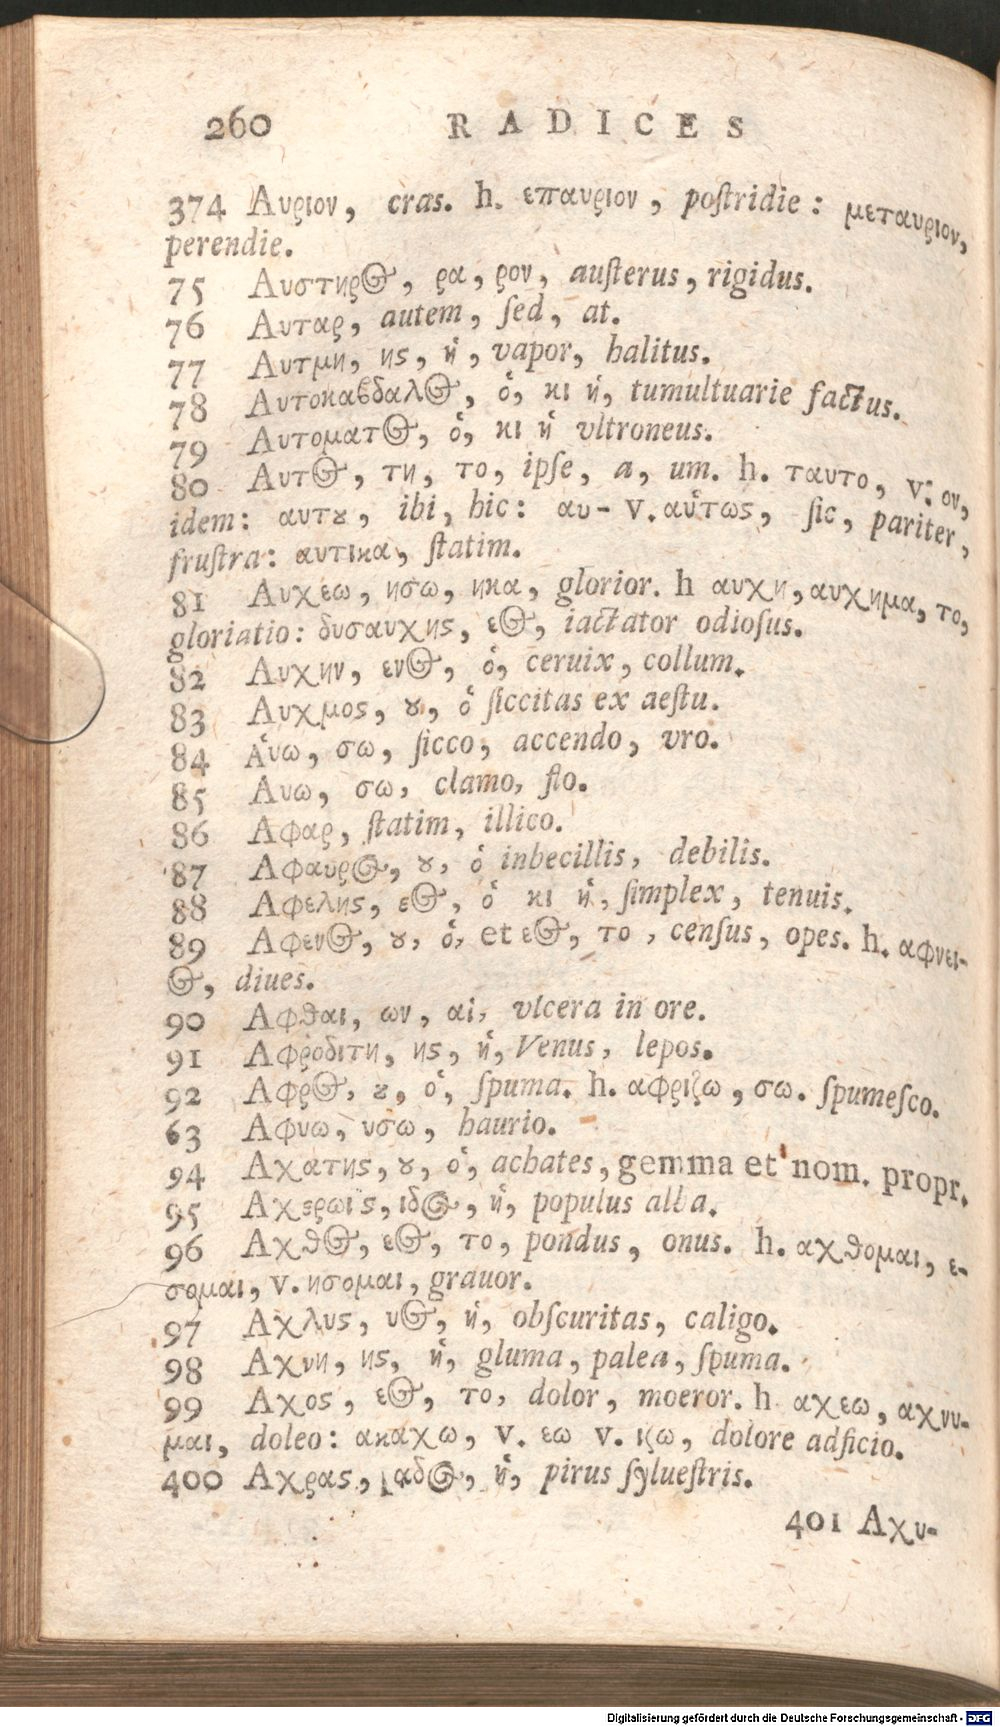 260 RADICES
374 Αυριον, cras. h. επαυριον, poſtridie: μεταυριον,
perendie.
75 Αυστηρος, ρα, ρον, auſterus, rigidus.
76 Αυταρ, autem, ſed, at.
77 Αυτμη, ης, ἡ, vapor, halitus.
78 Αυτοκαϐδαλος, ὁ, κι ἡ, tumultuarie factus.
79 Αυτοματος, ὁ, κι ἡ vltroneus.
80 Αυτος, τη, το, ipſe, a, um. h. ταυτο, v. ον,
idem: αυτȣ, ibi, hic: αυ- v. αὑτως, ſic, pariter,
fruſtra: αυτικα, ſtatim.
81 Αυχεω, ησω, ηκα, glorior. h αυχη, αυχημα, το,
gloriatio: δυσαυχης, εος, iactator odioſus.
82 Αυχην, ενος, ὁ, ceruix, collum.
83 Αυχμος, ȣ, ὁ ſiccitas ex aeſtu.
84 Αὑω, σω, ſicco, accendo, vro.
85 Αυω, σω, clamo, flo.
86 Αφαρ, ſtatim, illico.
87 Αφαυρος, ȣ, ὁ inbecillis, debilis.
88 Αφελης, εος, ὁ κι ἡ, ſimplex, tenuis.
89 Αφενος, ȣ, ὁ, et εος, το, cenſus, opes. h. αφνει-
ος, diues.
90 Αφθαι, ων, αἱ, vlcera in ore.
91 Αφροδιτη, ης, ἡ, Venus, lepos.
92 Αφρος, ȣ, ὁ, ſpuma. h. αφριζω, σω. ſpumeſco.
63 Αφυω, υσω, haurio.
94 Αχατης, ȣ, ὁ, achates, gemma et nom. propr.
95 Αχερωϊς, ιδος, ἡ, populus alba.
96 Αχθος, εος, το, pondus, onus. h. αχθομαι, ε-
σομαι, v. ησομαι, grauor.
97 Αχλυς, υος, ἡ, obſcuritas, caligo.
98 Αχνη, ης, ἡ, gluma, palea, ſpuma.
99 Αχος, εος, το, dolor, moeror. h αχεω, αχνυ-
μαι, doleo: ακαχω, v. εω v. ιζω, dolore adficio.
400 Αχρας, αδος, ἡ, pirus ſylueſtris.
401 Αχυ-
Digitalisierung gefördert durch die Deutsche Forschungsgemeinschaft - DFG